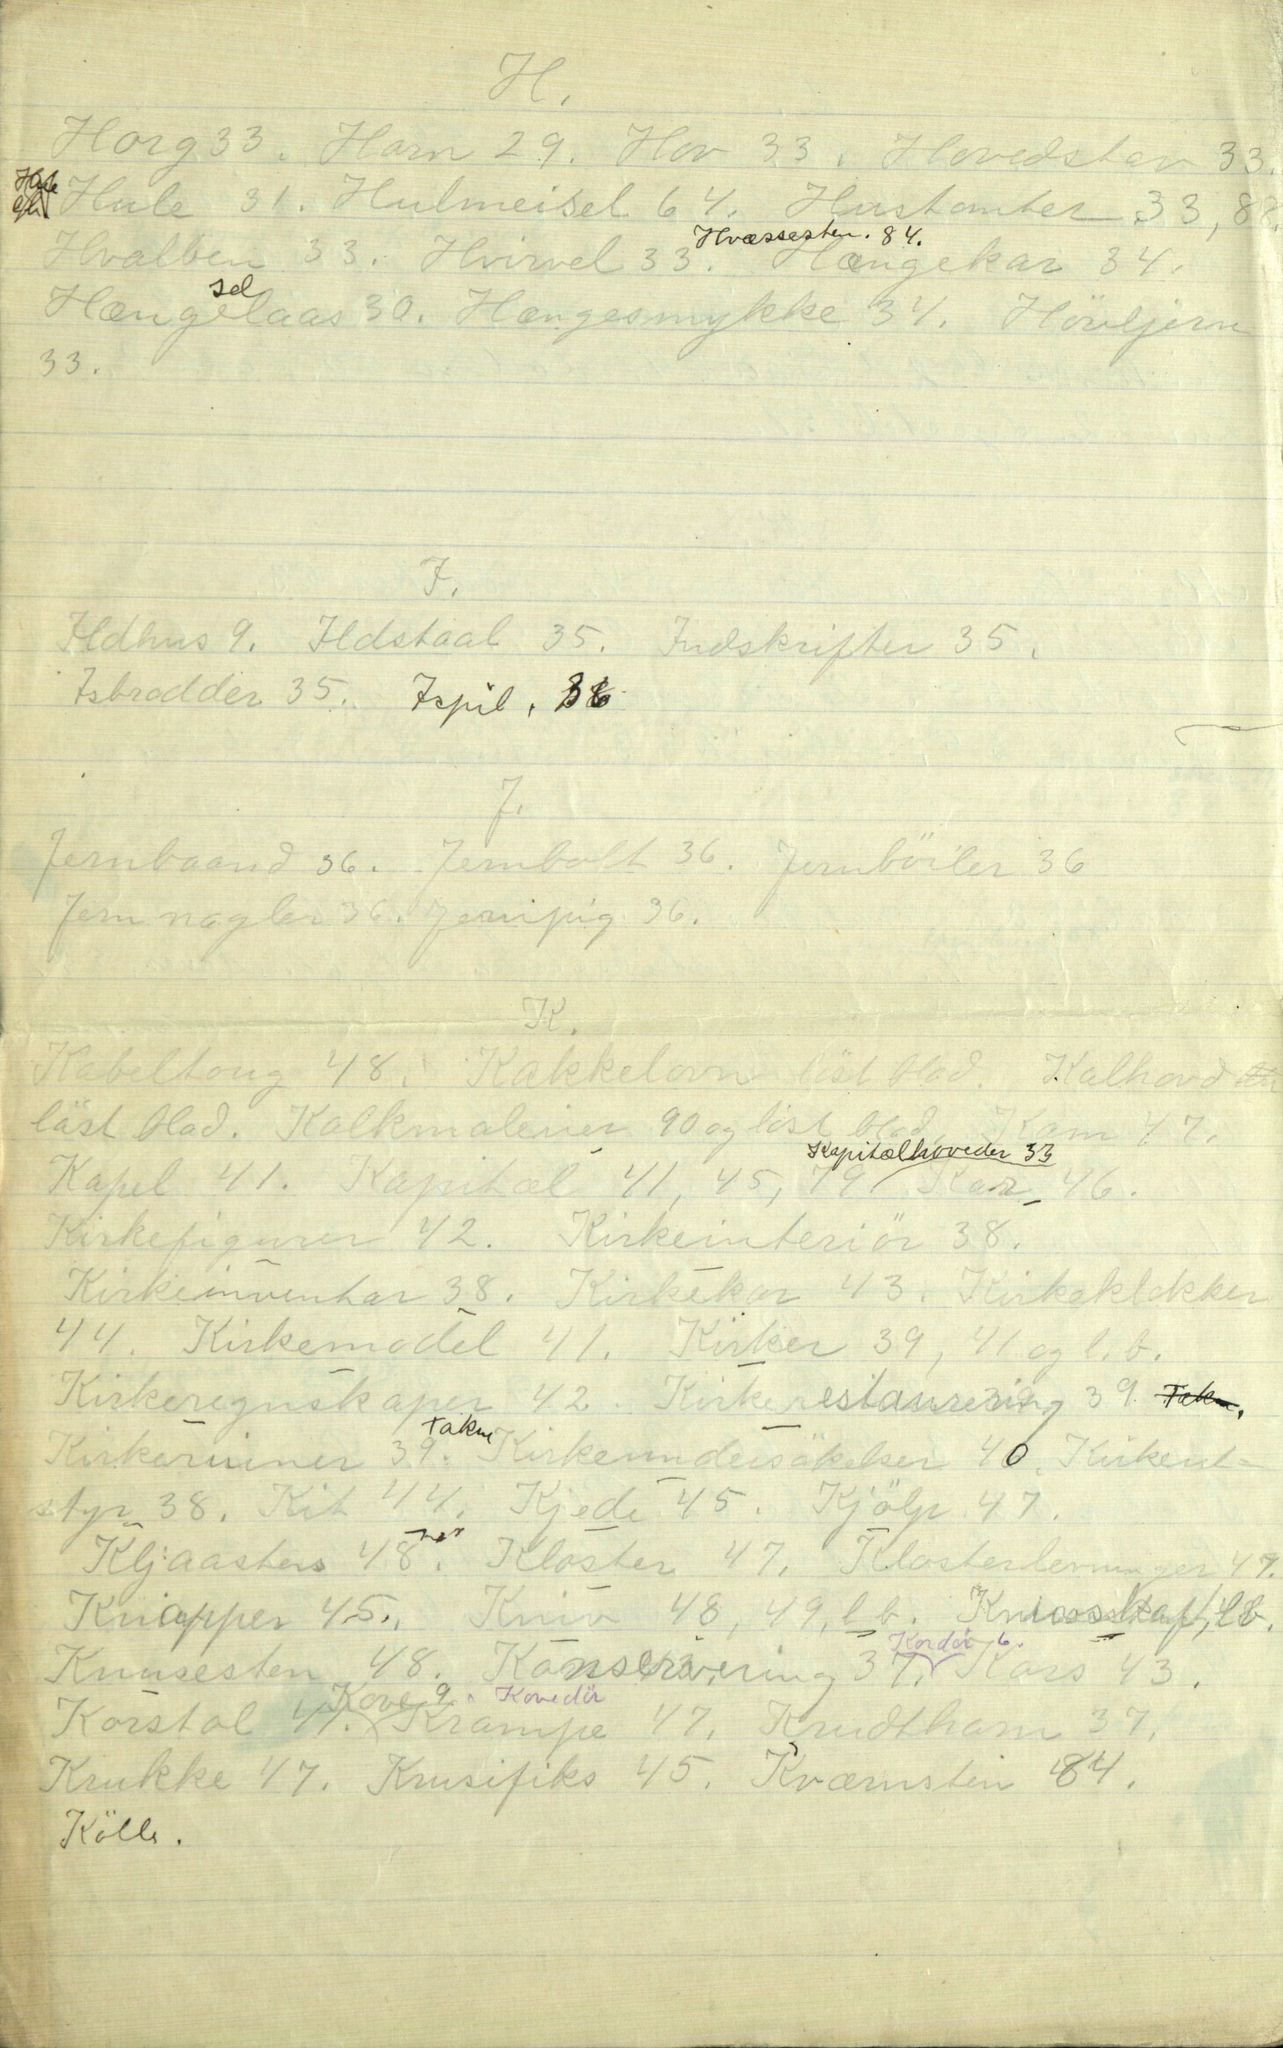 H.
Horg 33. Horn 29. Hov 33. Hovedstav 33.
Hule 31. Hulmeisel 64. Hustomter 33, 88.
Hvæssesten. 84.
Hvalben 33. Hvirvel 33. Hængekar 34.
sel
Hængelaas 30. Hængesmykke 34. Hövljern
33.
I.
Ildhus 9. Ildstaal 35. Indskrifter 35.
Isbrodder 35. Ispil. 36
J.
Jernbaand 36. Jernbolt 36. Jernböiler 36
Jernnagler 36. Jernpig 36.
K.
Kabeltoug 48. Kakkelovn löst blad. Kalhovd
löst blad. Kalkmalerier 90 og löst blad. Kam 47.
Kapitælhoveder 33
Kapel 41. Kapitæl 41, 45, 79. Kar 46.
Kirkefigurer 42. Kirkeinteriör 38.
Kirkeinventar 38. Kirkekar 43. Kirkeklokker
44. Kirkemodel 41. Kirker 39, 41 og l. b.
Kirkeregnskaper 42. Kirkerestaurering 39. Takn.
Takne
Kirkeruiner 39. Kirkeundersökelser 40. Kirkeut-
styr 38. Kit 44. Kjede 45. Kjölp 47.
Kljaasten 48. Kloster 47. Klosterlevninger 47.
Knapper 45. Kniv 48, 49, l. b. Knivskaft, l. b.
Kordör 6.
Knusesten 48. Konservering 37. Kors 43.
Kove 9. Kovedör
Korstol 41. Krampe 47. Krudthorn 37.
Krukke 47. Krusifiks 45. Kværnsten 84.
Kölle.